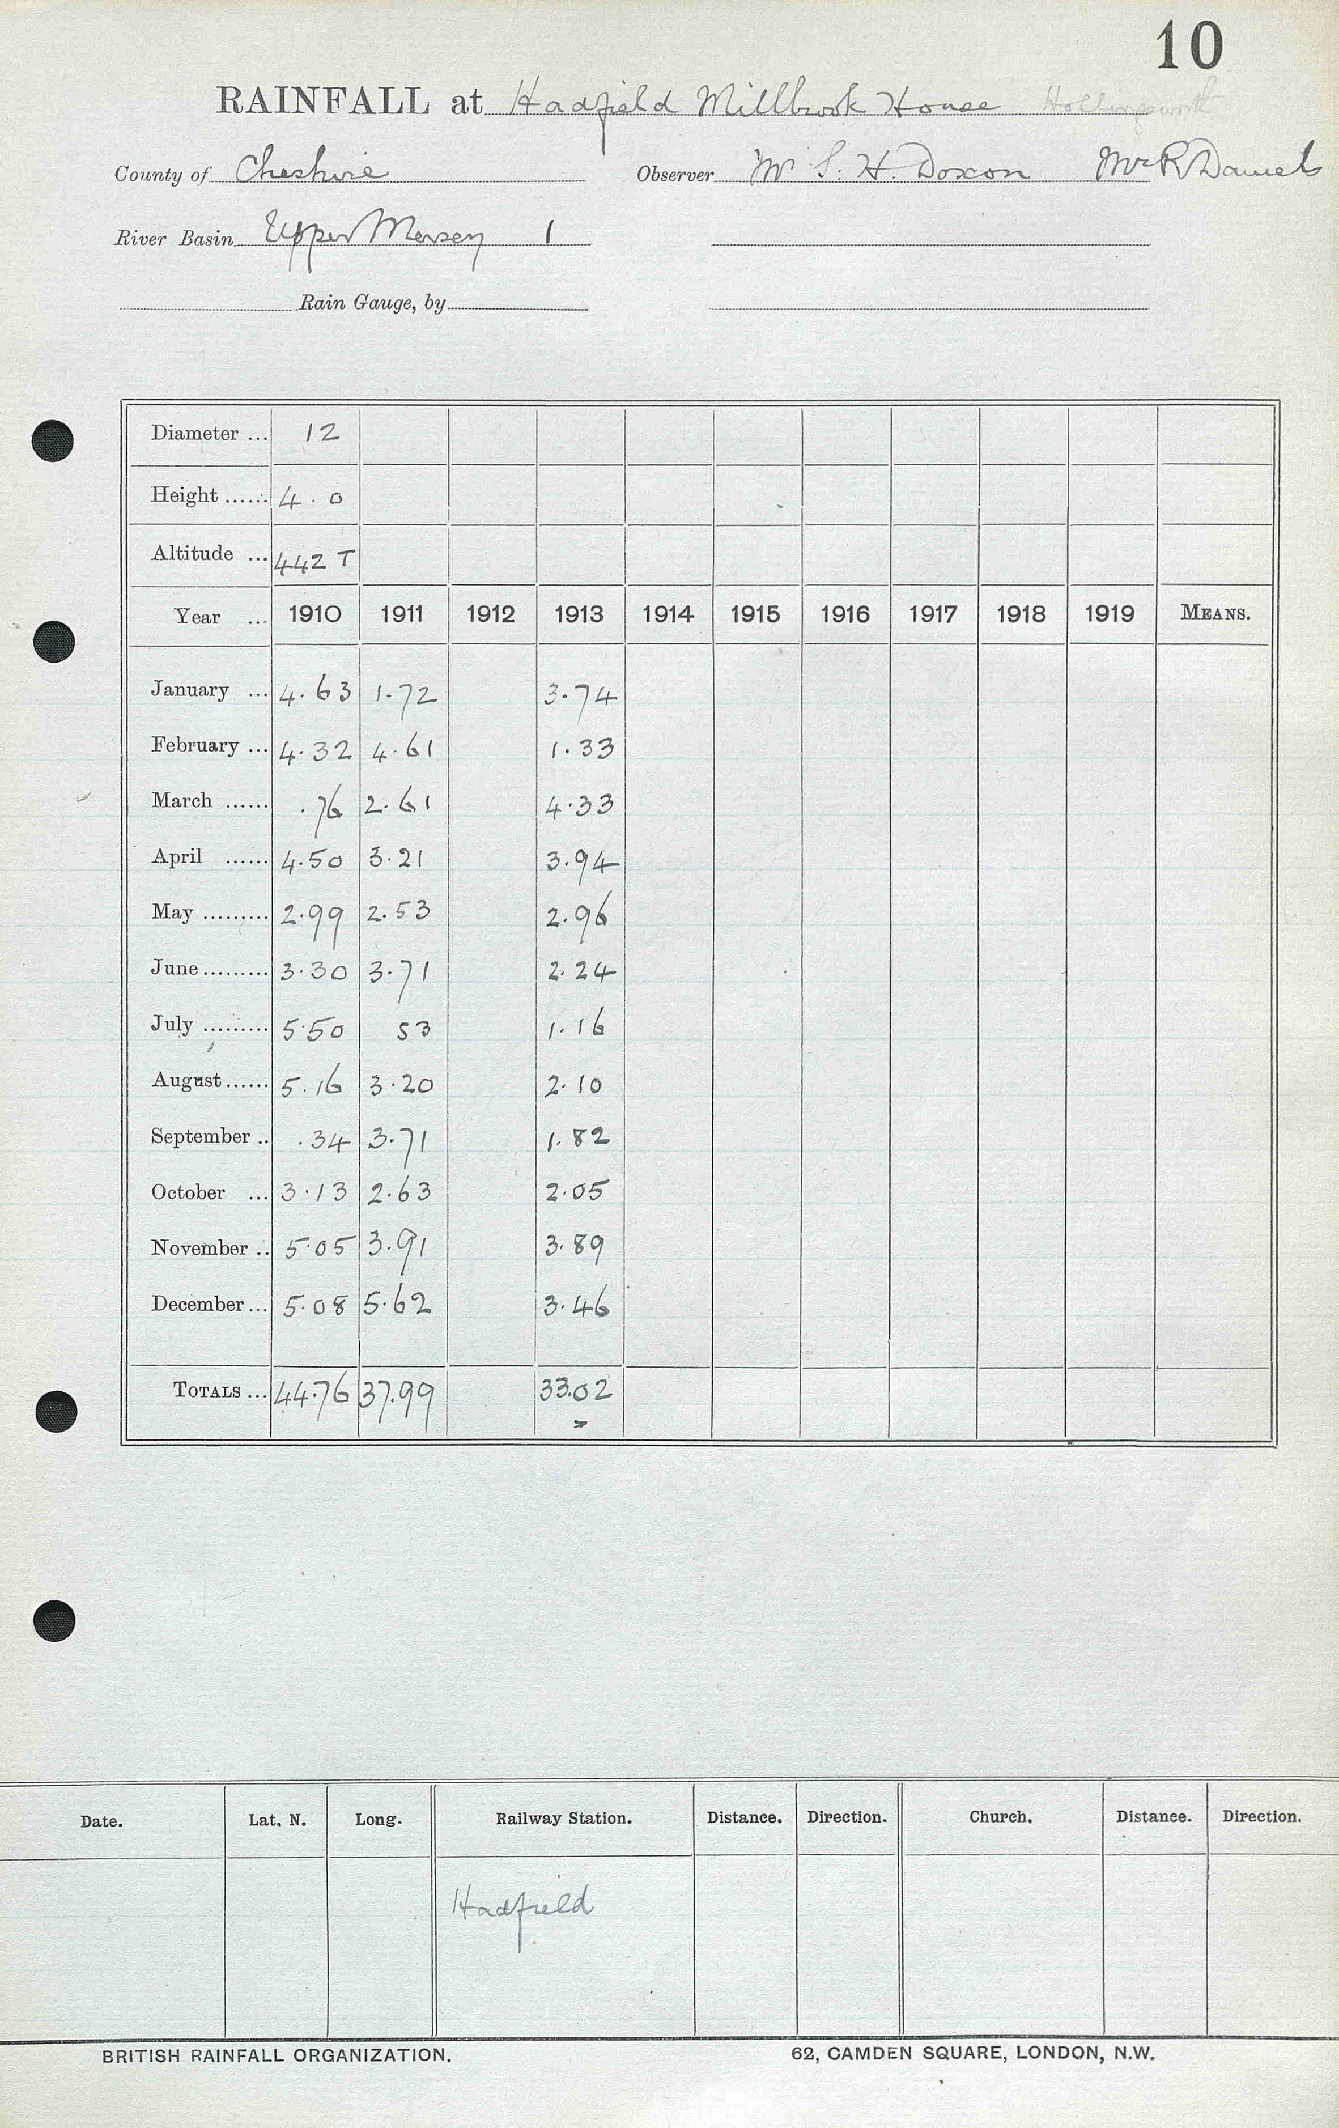 10
RAINFALL at Hadfield Millbrook House Hollingworth
County of Cheshire Observer Mr S. H. Doxon Mr R Daniels
River Basin Upper Mersey 1
Rain Gauge, by
Diameter ... 12
Height ...... 4.0
Altitude ... 442 T
Year ... 1910 1911 1912 1913 1914 1915 1916 1917 1918 1919 MEANS.
January ... 4.63 1.72 3.74
February ... 4.32 4.61 1.33
March ...... .76 2.61 4.33
April ...... 4.50 3.21 3.94
May ......... 2.99 2.53 2.96
June ......... 3.30 3.71 2.24
July ......... 5.50 53 1.16
August ...... 5.16 3.20 2.10
September .. .34 3.71 1.82
October ... 3.13 2.63 2.05
November .. 5.05 3.91 3.89
December ... 5.08 5.62 3.46
TOTALS ... 44.76 37.99 33.02
Date. Lat. N. Long. Railway Station. Distance. Direction. Church. Distance. Direction.
Hadfield
BRITISH RAINFALL ORGANIZATION. 62, CAMDEN SQUARE, LONDON, N.W.